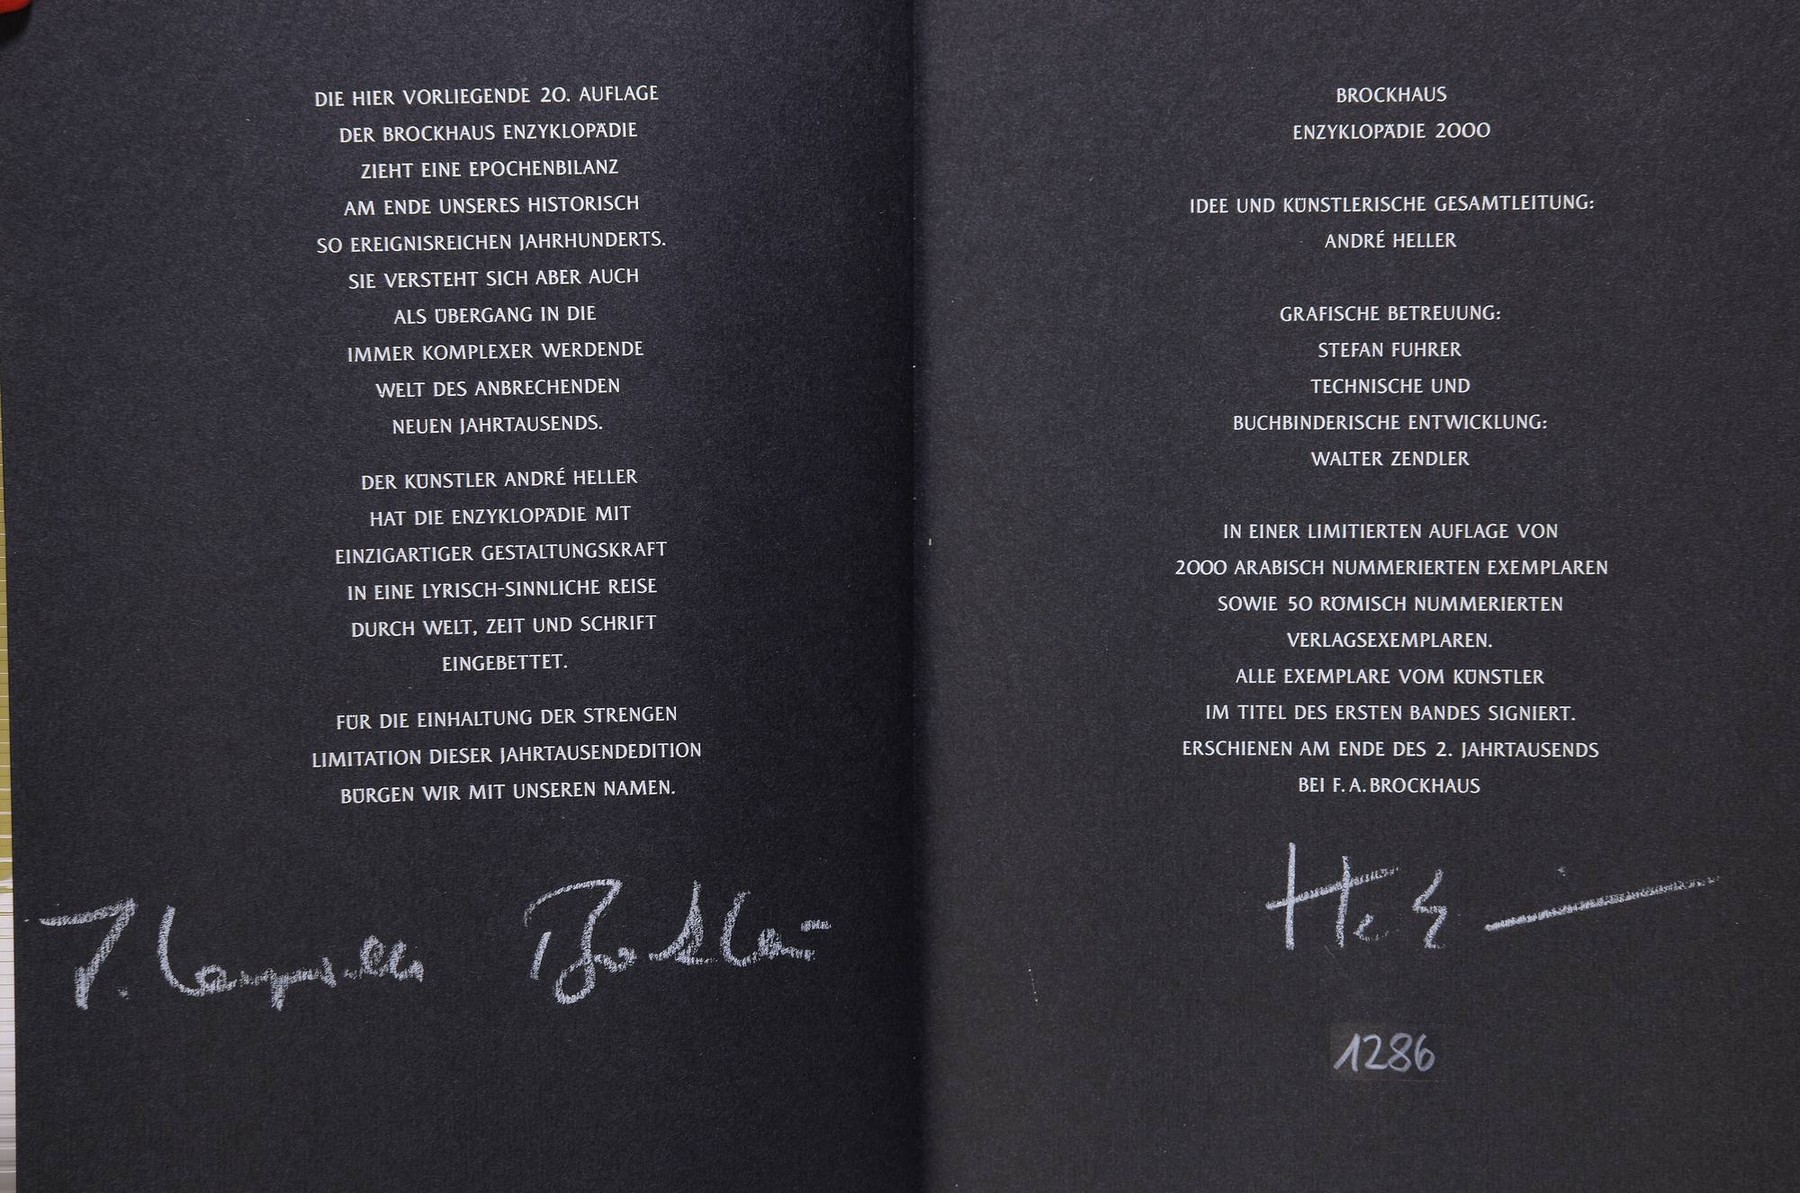 DIE HIER VORLIEGENDE 20. AUFLAGE
DER BROCKHAUS ENZYKLOPÄDIE
ZIEHT EINE EPOCHENBILANZ
AM ENDE UNSERES HISTORISCH
SO EREIGNISREICHEN JAHRHUNDERTS.
SIE VERSTEHT SICH ABER AUCH
ALS ÜBERGANG IN DIE
IMMER KOMPLEXER WERDENDE
WELT DES ANBRECHENDEN
NEUEN JAHRTAUSENDS.
DER KÜNSTLER ANDRÉ HELLER
HAT DIE ENZYKLOPÄDIE MIT
EINZIGARTIGER GESTALTUNGSKRAFT
IN EINE LYRISCH-SINNLICHE REISE
DURCH WELT, ZEIT UND SCHRIFT
EINGEBETTET.
FÜR DIE EINHALTUNG DER STRENGEN
LIMITATION DIESER JAHRTAUSENDEDITION
BÜRGEN WIR MIT UNSEREN NAMEN.
BROCKHAUS
ENZYKLOPÄDIE 2000
IDEE UND KÜNSTLERISCHE GESAMTLEITUNG:
ANDRÉ HELLER
GRAFISCHE BETREUUNG:
STEFAN FUHRER
TECHNISCHE UND
BUCHBINDERISCHE ENTWICKLUNG:
WALTER ZENDLER
IN EINER LIMITIERTEN AUFLAGE VON
2000 ARABISCH NUMMERIERTEN EXEMPLAREN
SOWIE 50 RÖMISCH NUMMERIERTEN
VERLAGSEXEMPLAREN.
ALLE EXEMPLARE VOM KÜNSTLER
IM TITEL DES ERSTEN BANDES SIGNIERT.
ERSCHIENEN AM ENDE DES 2. JAHRTAUSENDS
BEI F. A. BROCKHAUS
1286